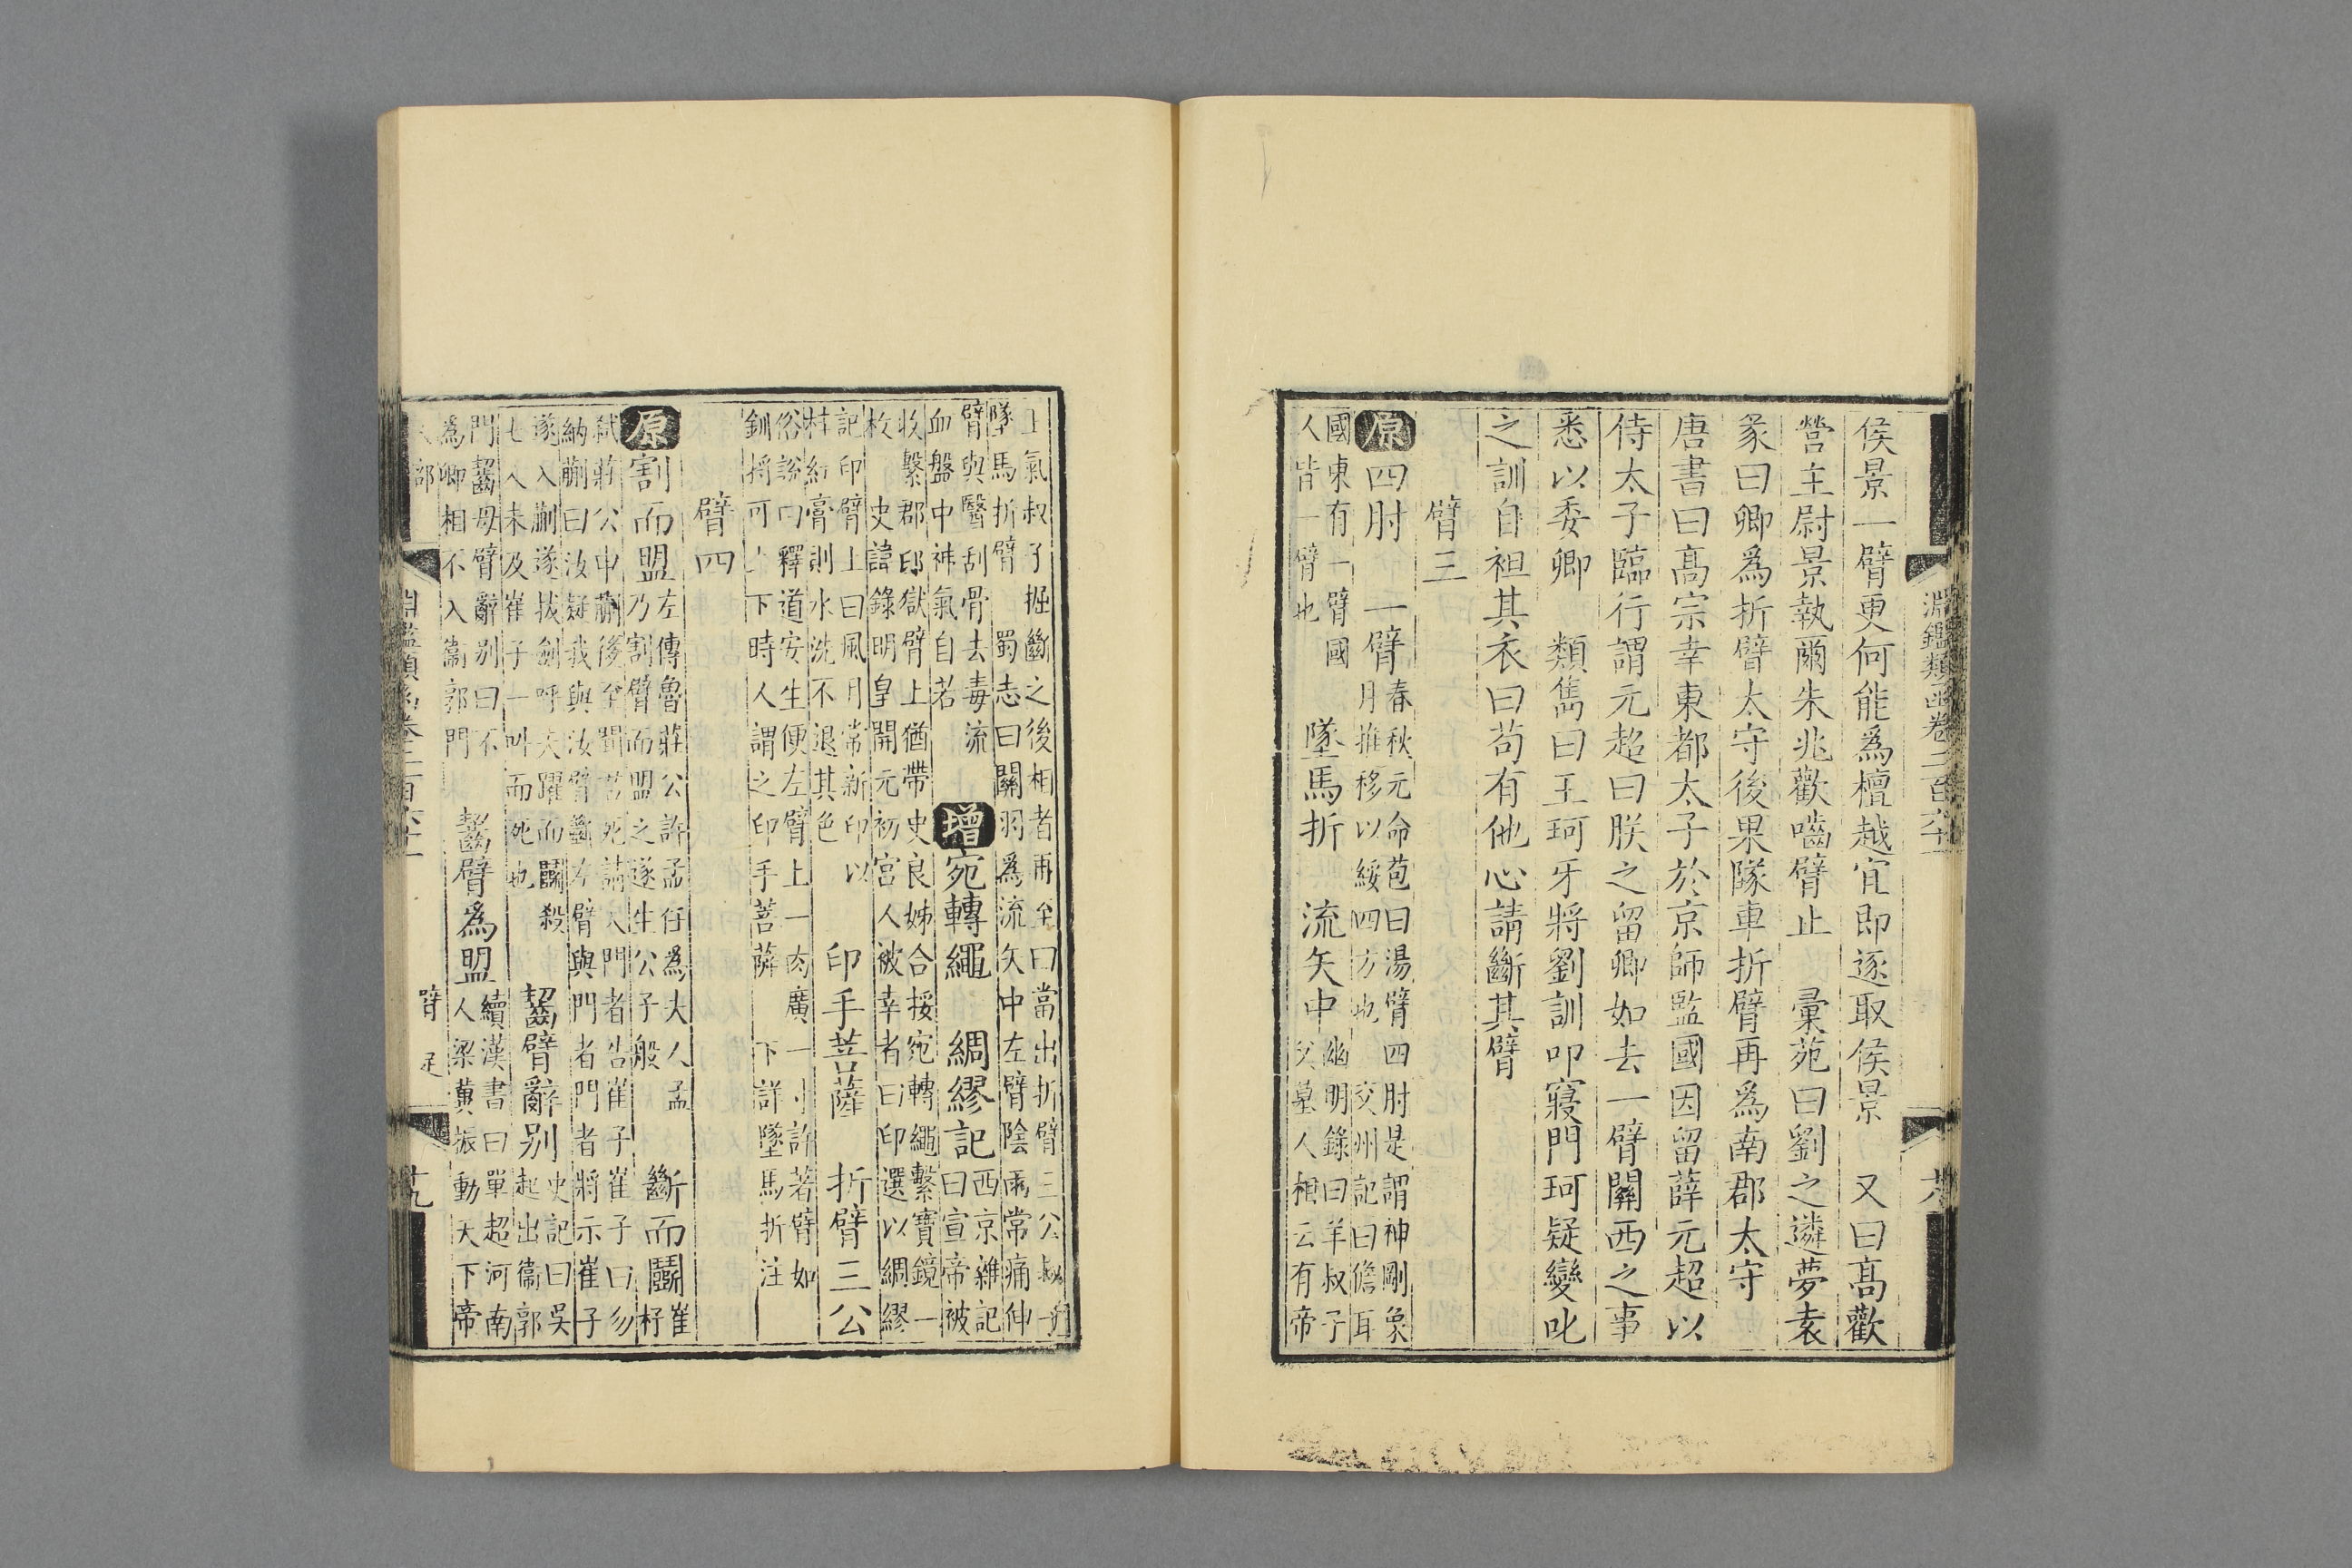 淵鑑類函卷二百六十一
侯景一臂更何能為檀越宜即逐取侯景 又曰高歡
營主尉景執爾朱兆歡嚙臂止 彚苑曰劉之遴夢袁
彖曰卿為折臂太守後果隊車折臂再為南郡太守
唐書曰高宗幸東都太子於京師監國因留薛元超以
侍太子臨行謂元超曰朕之留卿如去一臂關西之事
悉以委卿 類雋曰王珂牙將劉訓叩寢門珂疑變叱
之訓自袒其衣曰苟有他心請斷其臂
臂三
原四肘 一臂
春秋元命苞曰湯臂四肘是謂神剛象
月推移以綏四方也 交州記曰儋耳
國東有一臂國
人皆一臂也
墜馬折 流矢中
幽明錄曰羊叔子
父墓人相云有帝
上氣叔子掘斷之後相者再至曰當出折臂三公叔子
墜馬折臂 蜀志曰關羽為流矢中左臂陰雨常痛伸
臂與醫刮骨去毒流
血盤中神氣自若
增宛轉繩 綢繆記
西京雜記
曰宣帝被
收繫郡邸獄臂上猶帶史良娣合採宛轉繩繫寶鏡一
枚 史諱錄明皇開元初宮人被幸者曰印選以綢繆
記印臂上曰風月常新印以
桂紅膏訓水洗不退其色
印手菩薩 折臂三公
俗說曰釋道安生便左臂上一肉廣一寸許著臂如
釧捋可上下時人謂之印手菩薩 下詳墜馬折注
臂四
原割而盟
左傳魯莊公許孟任為夫人孟
乃割臂而盟之遂生公子般
斷而鬭
崔
杼
弒莊公中蒯後至聞莊死請入門者告崔子崔子曰勿
納蒯曰汝疑我與汝臂斷左臂與門者門者將示崔子
遂入蒯遂拔劍呼天躍而鬭殺
七人未及崔子一呌而死也
齧臂辭别
史記曰吳
起出衞郭
門齧母臂辭别曰不
為卿相不入衞郭門
齧臂為盟
續漢書曰單超河南
人梁冀振動天下帝
人部 臂 足 十九